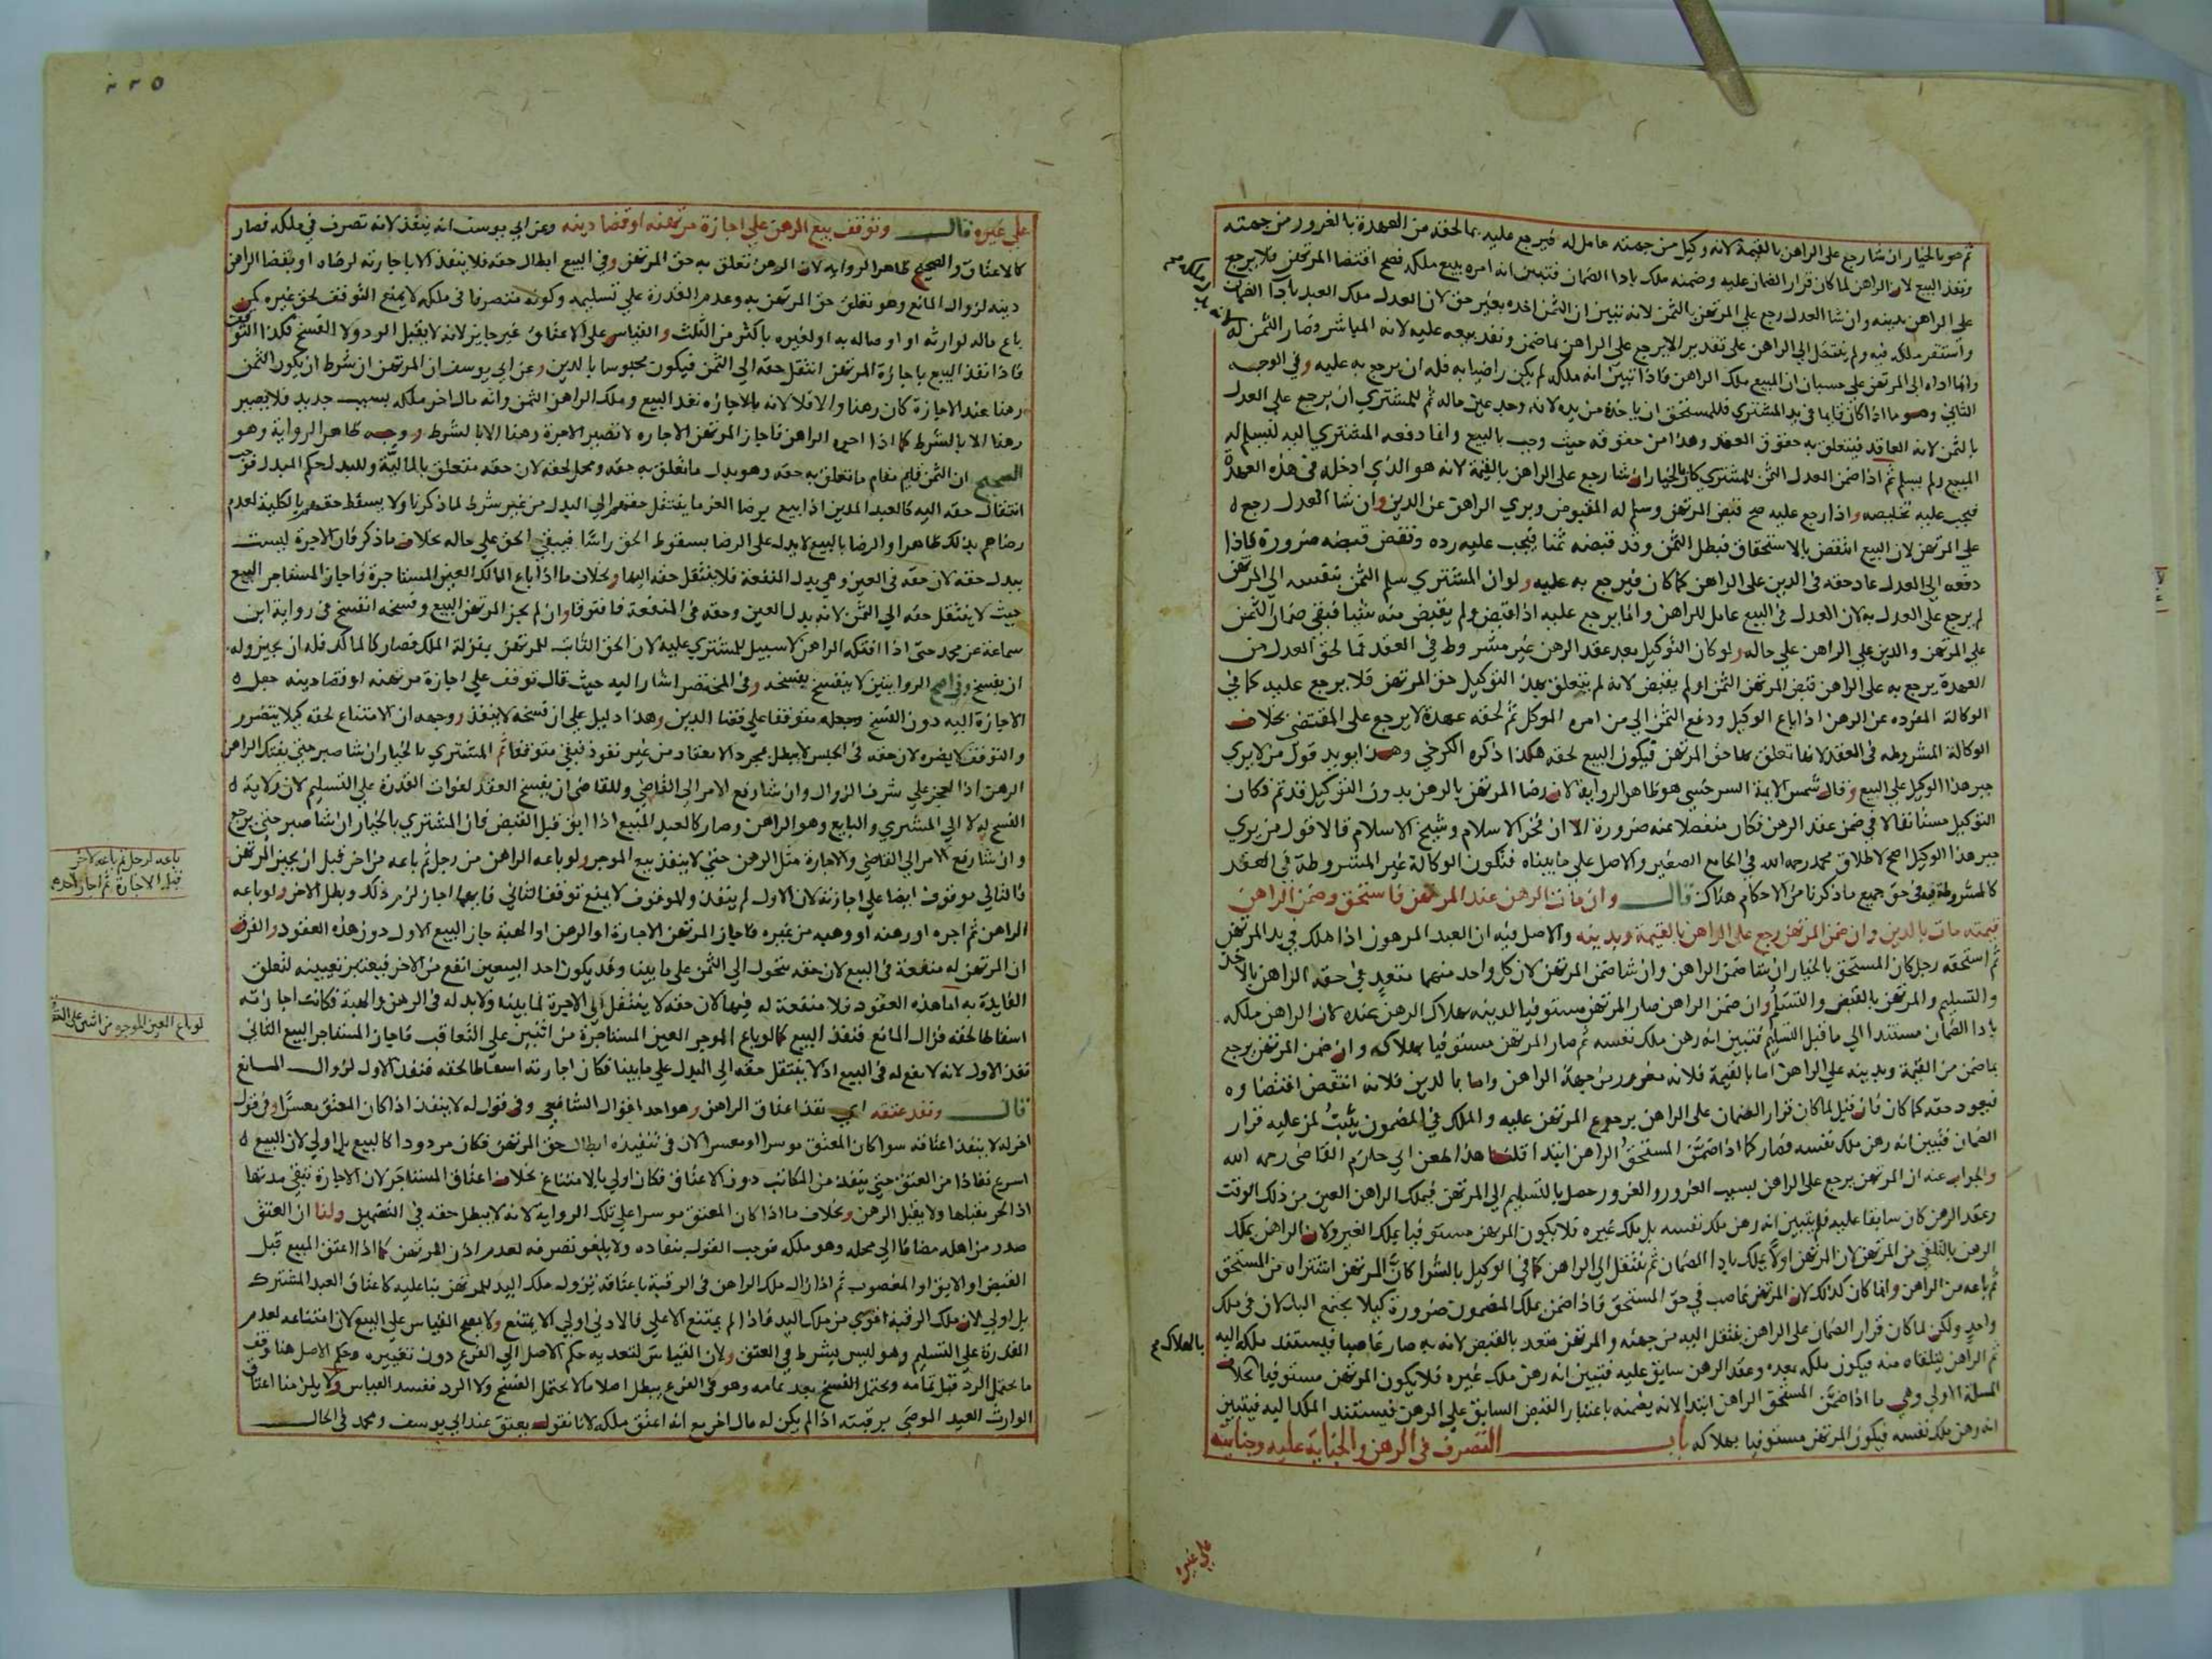 ثم هو بالخيار ان شا رجع على الراهن بالقيمة لانه وكيل من جهته عامل له فيرجع عليه بما لحقه من العهدة بالغرور من جهته
ونفذ البيع لان الراهن لما كان قرار الضمان عليه وضمنه ملك بادا الضمان فتبين انه امره ببيع ملكه فصح اقتضا المرتهن فلا يرجع
على الراهن بدينه وان شا العدل رجع على المرتهن بالثمن لانه تبين ان الثمن اخذه بغير حق لان العدل ملك العبد بادا الضمان
واستقر ملكه فيه ولم ينتقل الي الراهن على تقدير الا يرجع على الراهن بما ضمن ونفذ بيعه عليه لانه المباشر وصار الثمن له
وانما اداه الى المرتهن على حسبان ان المبيع ملك الراهن فاذا تبين انه ملكه لم يكن راضيا به فله ان يرجع به عليه وفي الوجه
الثاني وهو ما اذا كان قايما في يد المشتري فللمستحق ان ياخذه من يده لانه وجد عين ماله ثم للمشتري ان يرجع على العدل
بالثمن لانه العاقد فيتعلق به حقوق العقد وهذا من حقوقه حيث وجب بالبيع وانما دفعه المشتري اليه ليسلم له
المبيع ولم يسلم ثم اذا ضمن العدل الثمن للمشتري كان بالخيار ان شا رجع على الراهن بالقيمة لانه هو الذي ادخله في هذه العهدة
فيجب عليه تخليصه واذا رجع عليه صح قبض المرتهن وسلم له المقبوض وبري الراهن عن الدين وان شا العدل رجع
على المرتهن لان البيع انتقض بالاستحقاق فبطل الثمن وقد قبضه ثمنا فيجب عليه رده ونقض قبضه ضرورة فاذا
دفعه الي العدل عاد حقه في الدين على الراهن كما كان فيرجع به عليه ولو ان المشتري سلم الثمن بنفسه الى المرتهن
لم يرجع على العدل به لان العدل في البيع عامل للراهن وانما يرجع عليه اذا قبض ولم يقبض منه شيئا فبقي ضمان الثمن
على المرتهن والدين على الراهن علي حاله ولو كان التوكيل بعد عقد الرهن غير مشروط في العقد فما لحق العدل من
العهدة يرجع به على الراهن قبض المرتهن الثمن او لم يقبض لانه لم يتعلق بهذا التوكيل حق المرتهن فلا يرجع عليه كما في
الوكالة المفرده عن الرهن اذا باع الوكيل ودفع الثمن الي من امره الموكل ثم لحقه عهدة لا يرجع على المقتضي بخلاف
الوكالة المشروطه في العقد لانها تعلق بها حق المرتهن فيكون البيع لحقه هكذا ذكره الكرخي وهذا يويد قول من لا يري
جبر هذا الوكيل على البيع وقال شمس الايمة السرخسي هو ظاهر الرواية لان رضا المرتهن بالرهن بدون التوكيل قد تم فكان
التوكيل مستانفا لا في ضمن عقد الرهن فكان منفصلا عنه ضرورة الا ان فخر الاسلام وشيخ الاسلام قالا قول من يري
جبر هذا الوكيل اصح لاطلاق محمد رحمه الله في الجامع الصغير والاصل على ما بيناه فتكون الوكالة غير المشروطة في العقد
كالمشروطة فيه في حق جميع ما ذكرنا من الاحكام هناك قال وان مات الرهن عند المرتهن فاستحق وضمن الراهن
قيمته مات بالدين وان ضمن المرتهن رجع على الراهن بالقيمة وبدينه والاصل فيه ان العبد المرهون اذا هلك في يد المرتهن
ثم استحقه رجل كان المستحق بالخيار ان شا ضمن الراهن وان شا ضمن المرتهن لان كل واحد منهما متعد في حقه الراهن بالاخذ
والتسليم والمرتهن بالقبض والتسلم وان ضمن الراهن صار المرتهن مستوفيا لدينه بهلاك الرهن عنده لان الراهن ملكه
بادا الضمان مستندا الي ما قبل التسليم فتبين انه رهن ملك نفسه ثم صار المرتهن مستوفيا بهلاكه وان ضمن المرتهن يرجع
بما ضمن من القيمة وبدينه على الراهن اما بالقيمة فلانه مغرور من جهة الراهن واما بالدين فلانه انتقض اقتضاوه
فيعود حقه كما كان فان قيل لما كان قرار الضمان على الراهن برجوع المرتهن عليه والملك في المضمون يثبت لمن عليه قرار
الضمان فتبين انه رهن ملك نفسه فصار كما اذا ضمن المستحق الراهن ابتدا قلنا هذا طعن ابي حازم القاضي رحمه الله
والجواب عنه ان المرتهن يرجع على الراهن بسبب الغرور والغرور حصل بالتسليم الى المرتهن فيملك الراهن العين من ذلك الوقت
وعقد الرهن كان سابقا عليه فلم يتبين انه رهن ملك نفسه بل ملك غيره فلا يكون المرتهن مستوفيا بملك الغير ولان الراهن يملك
الرهن بالتلقي من المرتهن لان المرتهن اولا يملك بادا الضمان ثم ينتقل الى الراهن كما في الوكيل بالشرا كان المرتهن اشتراه من المستحق
ثم باعه من الراهن وانما كان كذلك لان المرتهن غاصب في حق المستحق فاذا ضمن يملك المضمون ضرورة كيلا يجتمع البدلان في ملك
واحد ولكن لما كان قرار الضمان على الراهن ينتقل اليه من جهته والمرتهن متعد بالقبض لانه به صار غاصبا فيستند ملكه اليه
ثم الراهن يتلقاه منه فيكون ملكه بعده وعقد الرهن سابق عليه فتبين انه رهن ملك غيره فلا يكون المرتهن مستوفيا بخلاف
المسلة الاولي وهي ما اذا ضمن المستحق الراهن ابتدا لانه يضمنه باعتبار القبض السابق على الرهن فيستند الملك اليه فيتبين
انه رهن ملك نفسه فيكون المرتهن مستوفيا بهلاكه باب التصرف في الرهن والجناية عليه وجنايته
بالهلاك
على غيره
٢٢٥
على غيره قال وتوقف بيع الرهن على اجازة مرتهنه او قضا دينه وعن ابي يوسف انه ينفذ لانه تصرف في ملكه فصار
كالاعتاق والصحيح ظاهر الرواية لان الرهن تعلق به حق المرتهن وفي البيع ابطال حقه فلا ينفذ الا باجازته لرضاه او بقضا الراهن
دينه لزوال المانع وهو تعلق حق المرتهن به وعدم القدرة على تسليمه وكونه متصرفا في ملكه لا يمنع التوقف لحق غيره كمن
باع ماله لوارثه او اوصاله به او لغيره باكثر من الثلث والقياس على الاعتاق غير جايز لانه لا يقبل الرد ولا الفسخ فكذا التوقف
فاذا نفذ البيع باجازة المرتهن انتقل حقه الي الثمن فيكون محبوسا بالدين وعن ابي يوسف ان المرتهن ان شرط ان يكون الثمن
رهنا عند الاجازة كان رهنا والا فلا لانه بالاجازه نفذ البيع وملك الراهن الثمن وانه مال اخر ملكه بسبب جديد فلا يصير
رهنا الا بالشرط كما اذا اجر الراهن فاجاز المرتهن الاجاره لا تصير الاجرة رهنا الا بالشرط ووجه ظاهر الرواية وهو
الصحيح ان الثمن قايم مقام ما تعلق به حقه وهو بدل ما تعلق به حقه ومحل لحقه لان حقه متعلق بالمالية وللبدل حكم المبدل فوجب
انتقال حقه اليه كالعبد المدين اذا بيع برضا الغرما ينتقل حقهم الى البدل من غير شرط لما ذكرنا ولا يسقط حقهم بالكلية لعدم
رضاهم بذلك ظاهرا والرضا بالبيع لا يدل على الرضا بسقوط الحق راسا فيبقي الحق على حاله بخلاف ما ذكر فان الاجرة ليست
ببدل حقه لان حقه في العين وهي بدل المنفعة فلا ينتقل حقه اليها وبخلاف ما اذا باع المالك العين المستاجرة فاجاز المستاجر البيع
حيث لا ينتقل حقه الي الثمن لانه بدل العين وحقه في المنفعة فافترقا وان لم يجز المرتهن البيع وفسخه انفسخ في رواية ابن
سماعة عن محمد حتى اذا افتكه الراهن لا سبيل للمشتري عليه لان الحق الثابت للمرتهن بمنزلة الملك فصار كالمالك فله ان يجيز وله
ان يفسخ وفي اصح الروايتين لا ينفسخ بفسخه وفي المختصر اشار اليه حيث قال توقف على اجازة مرتهنه او قضا دينه جعل
الاجازة اليه دون الفسخ وجعله متوقفا على قضا الدين وهذا دليل على ان فسخه لا ينفذ ووجهه ان الامتناع لحقه كيلا يتضرر
والتوقف لا يضره لان حقه في الحبس لا يبطل بمجرد الانعقاد من غير نفوذ فبقي متوقفا ثم المشتري بالخيار ان شا صبر حتى يفتك الراهن
الرهن اذا العجز على شرف الزوال وان شا رفع الامر الى القاضي وللقاضي ان يفسخ العقد لفوات القدرة على التسليم لان ولاية
الفسخ له لا الى المشتري والبايع وهو الراهن وصار كالعبد المبيع اذا ابق قبل القبض فان المشتري بالخيار ان شا صبر حتى يرجع
وان شا رفع الامر الى القاضي والاجارة مثل الرهن حتى لا ينفذ بيع الموجر ولو باعه الراهن من رجل ثم باعه من اخر قبل ان يجيز المرتهن
فالثاني موقوف ايضا على اجازته لان الاول لم ينفذ والموقوف لا يمنع توقف الثاني فايهما اجاز لزم ذلك وبطل الاخر ولو باعه
الراهن ثم اجره او رهنه او وهبه من غيره فاجاز المرتهن الاجارة او الرهن او الهبة جاز البيع الاول دون هذه العقود والفرق
ان المرتهن له منفعة في البيع لان حقه يتحول الي الثمن على ما بينا وقد يكون احد البيعين انفع من الاخر فيعتبر تعيينه لتعلق
الفايدة به اما هذه العقود فلا منفعة له فيها لان حقه لا ينتقل الى الاجرة لما بينه ولا بدل له في الرهن والهبة فكانت اجازته
اسقاطا لحقه فزال المانع فنفذ البيع كما لو باع الموجر العين المستاجرة من اثنين على التعاقب فاجاز المستاجر البيع الثاني
نفذ الاول لانه لا نفع له في البيع اذ لا ينتقل حقه الى البدل على ما بينا فكان اجازته اسقاطا لحقه فنفذ الاول لزوال المانع
قال ونفذ عتقه اي نفذ اعتاق الراهن وهو احد اقوال الشافعي وفي قول له لا ينفذ اذا كان المعتق معسرا وفي قول
اخر له لا ينفذ اعتاقه سوا كان المعتق موسرا او معسرا لان في تنفيذه ابطال حق المرتهن فكان مردودا كالبيع بل اولي لان البيع
اسرع نفاذا من العتق حتى ينفذ من المكاتب دون الاعتاق فكان اولي بالامتناع بخلاف اعتاق المستاجر لان الاجارة تبقي مدتها
اذ الحر يقبلها ولا يقبل الرهن وبخلاف ما اذا كان المعتق موسرا على تلك الرواية لانه لا يبطل حقه في التضمين ولنا ان العتق
صدر من اهله مضافا الي محله وهو ملكه فوجب القول بنفاده ولا يلغو تصرفه لعدم اذن المرتهن كما اذا اعتق المبيع قبل
القبض او الابق او المغصوب ثم اذا زال ملك الراهن في الرقبة باعتاقه يزول ملك اليد للمرتهن بنا عليه كاعتاق العبد المشترك
بل اولي لان ملك الرقبة اقوي من ملك اليد فاذا لم يمتنع الاعلى فالادني اولي الا يمتنع ولا يصح القياس على البيع لان امتناعه لعدم
القدرة على التسليم وهو ليس بشرط في العتق ولان القياس لتعديه حكم الاصل الي الفرع دون تغييره وحكم الاصل هنا وقف
ما يحتمل الرد قبل تمامه ويحتمل الفسخ بعد تمامه وهو في الفرع يبطل اصلا ما لا يحتمل الفسخ ولا الرد ففسد القياس ولا يلزمنا اعتاق
الوارث العبد الموصي برقبته اذا لم يكن له مال اخر مع انه اعتق ملكه لانا نقول يعتق عند ابي يوسف ومحمد في الحال
باعه لرجل ثم باعه لاخر
قبل الاجازة ثم اجاز احدهما
لو باع العين الموجره من اثنين على